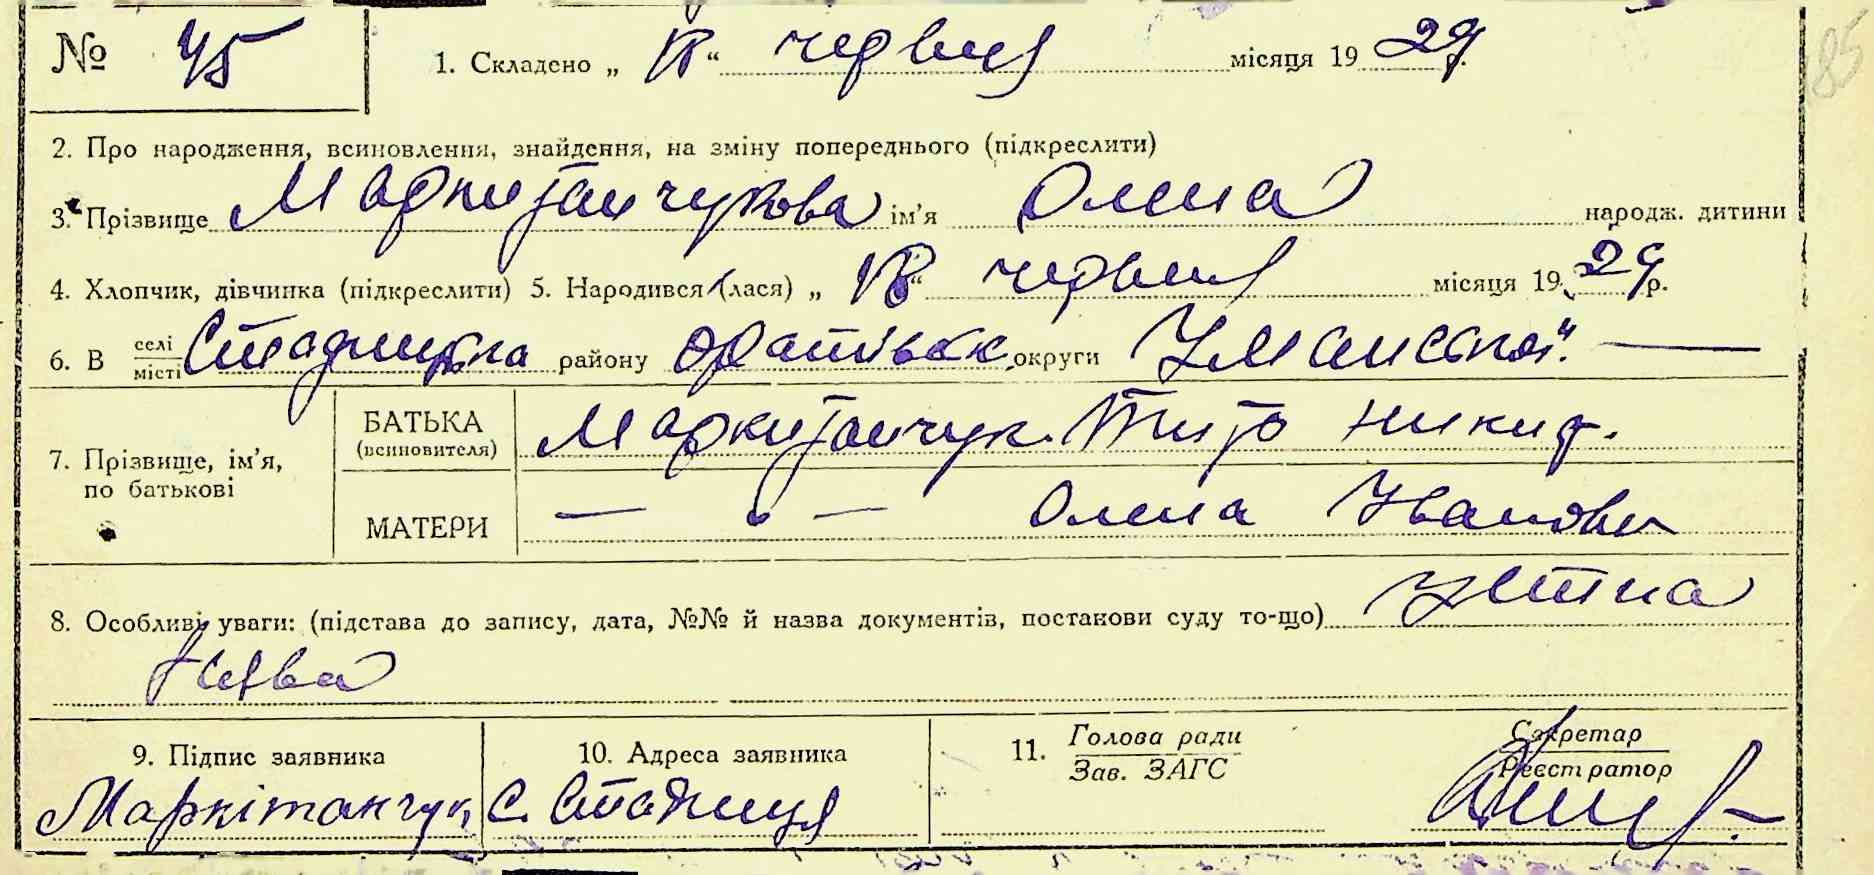 № 45 1. Складено „ “ червня місяця 1929 р.
185
2. Про народження, всиновлення, знайдення, на зміну попереднього (підкреслити)
3. Прізвище Маркитанчукова ім’я Олена народж. дитини
4. Хлопчик, дівчинка (підкреслити) 5. Народився (лася) „ “ червня місяця 1929 р.
6. В селі місті району Оратівськ. округи Уманської.
7. Прізвище, ім’я, по батькові
БАТЬКА (всиновителя) Маркитанчук Тит Никиф.
МАТЕРИ — „ — Олена Іванівн
8. Особливі уваги: (підстава до запису, дата, №№ й назва документів, постанови суду то-що) Устна
заява
9. Підпис заявника 10. Адреса заявника 11. Голова ради Зав. ЗАГС Секретар Реєстратор
Маркітанчук с. Стадниця